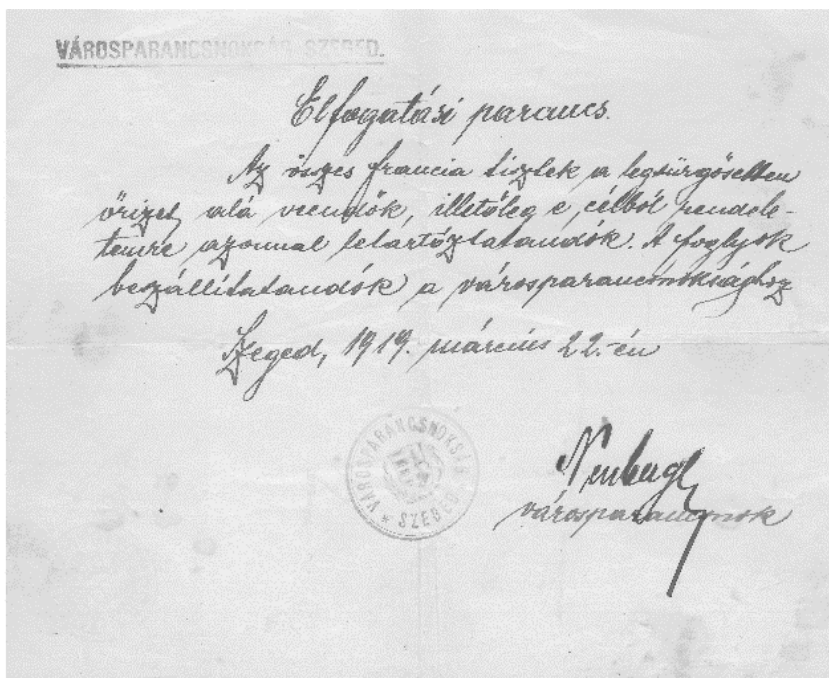 VÁROSPARANCSNOKSÁG SZEGED.
Elfogatási parancs.
Az összes francia tisztek a legsürgősebben
őrizet alá veendők, illetőleg e célból rendele-
temre azonnal letartóztatandók. A foglyok
beszállítatandók a városparancsnoksághoz
Szeged, 1919. március 22.-én
VÁROSPARANCSNOKSÁG
* SZEGED *
városparancsnok